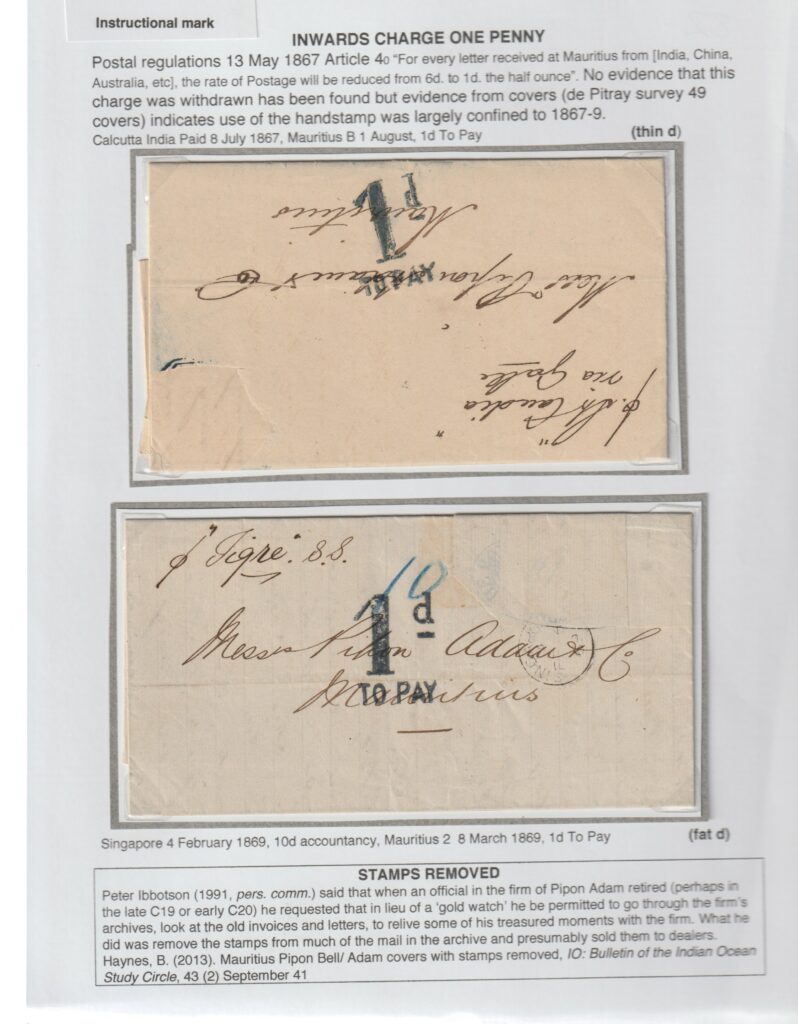 Instructional mark
INWARDS CHARGE ONE PENNY
Postal regulations 13 May 1867 Article 4o "For every letter received at Mauritius from [India, China,
Australia, etc], the rate of Postage will be reduced from 6d. to 1d. the half ounce". No evidence that this
charge was withdrawn has been found but evidence from covers (de Pitray survey 49
covers) indicates use of the handstamp was largely confined to 1867-9.
Calcutta India Paid 8 July 1867, Mauritius B 1 August, 1d To Pay
(thin d)
p. S/S "Candia"
via Galle
Mess Pipon & Co
1d
TO PAY
Mauritius
p "Tigre" S.S.
10
1d
Messrs Pipon Adam & Co
TO PAY
Mauritius
Singapore 4 February 1869, 10d accountancy, Mauritius 2 8 March 1869, 1d To Pay
(fat d)
STAMPS REMOVED
Peter Ibbotson (1991, pers. comm.) said that when an official in the firm of Pipon Adam retired (perhaps in
the late C19 or early C20) he requested that in lieu of a 'gold watch' he be permitted to go through the firm's
archives, look at the old invoices and letters, to relive some of his treasured moments with the firm. What he
did was remove the stamps from much of the mail in the archive and presumably sold them to dealers.
Haynes, B. (2013). Mauritius Pipon Bell/ Adam covers with stamps removed, IO: Bulletin of the Indian Ocean
Study Circle, 43 (2) September 41